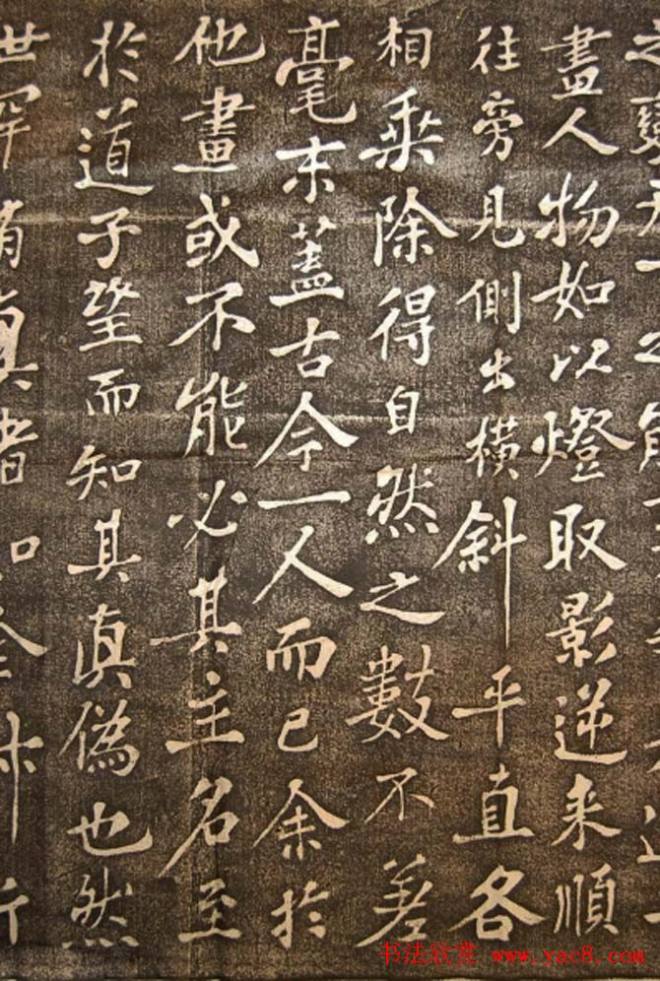 之變天下之能事
盡人物如以燈取影逆来順
往旁見側出橫斜平直各
相乘除得自然之數不差
毫末蓋古今一人而已余於
他畫或不能必其主名至
於道子望而知其真偽也然
世罕有真者如全叔所
书法欣赏 www.yac8.com